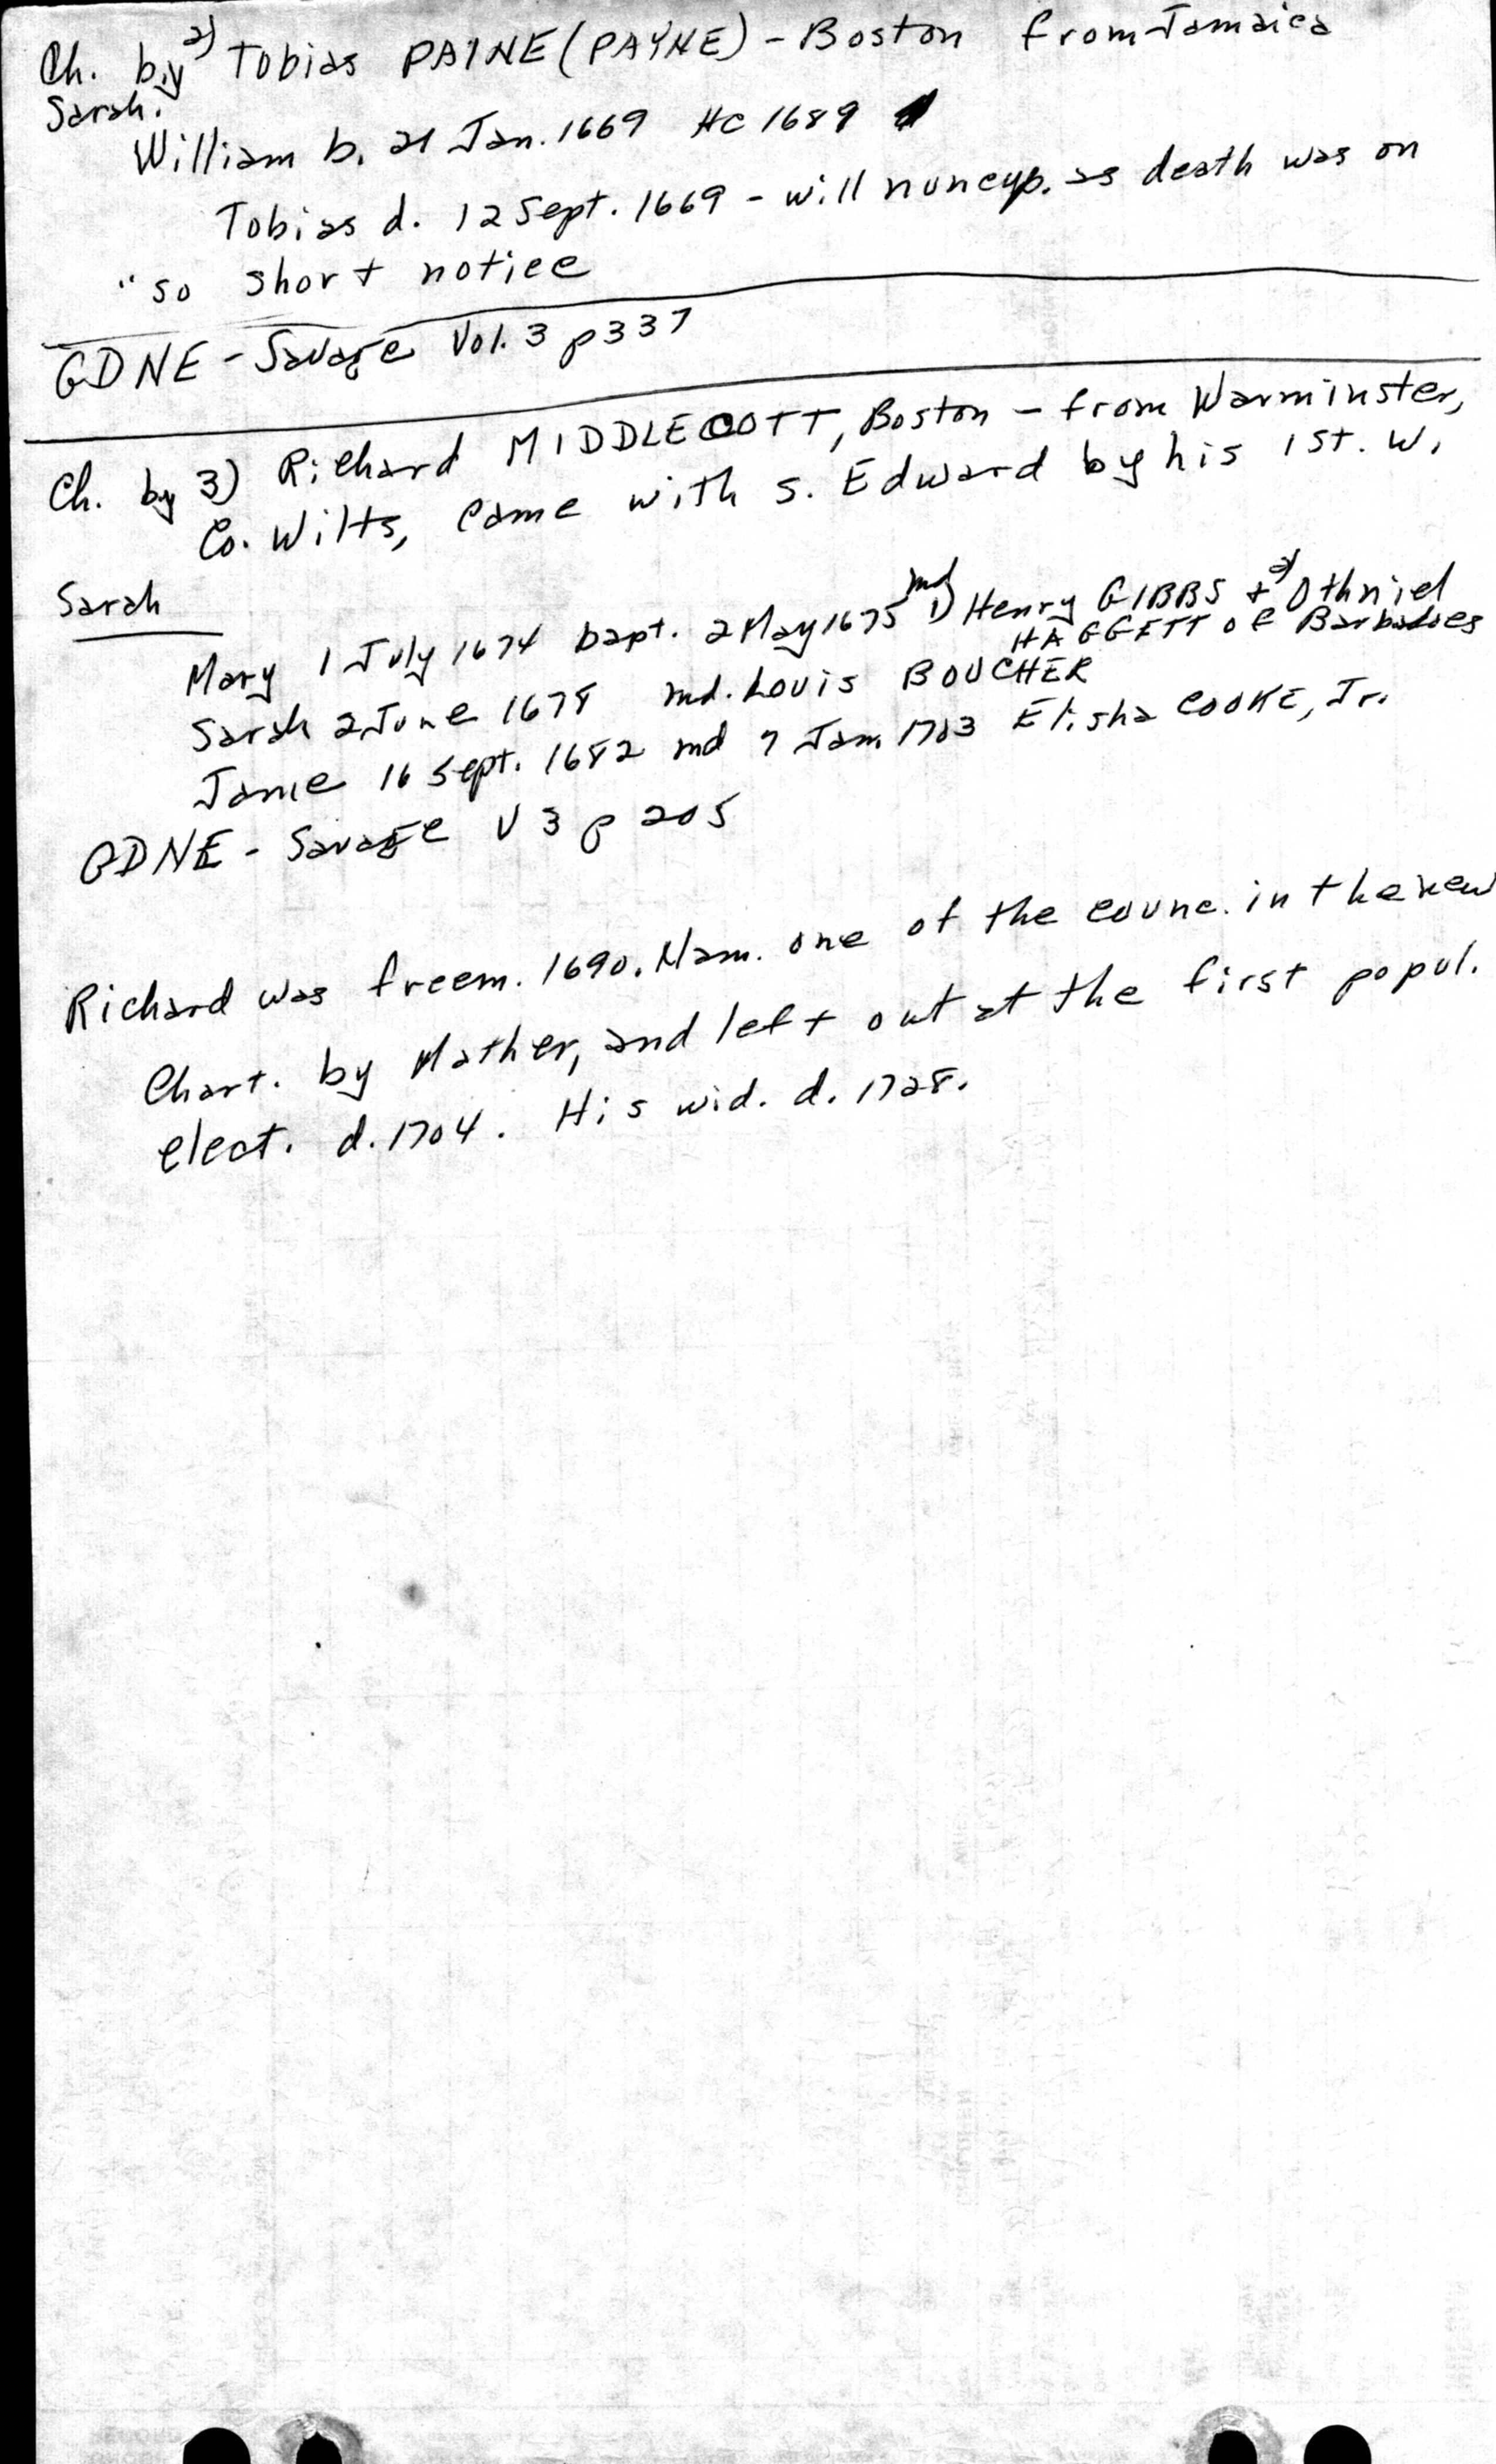 Ch. by 2) Tobias PAINE (PAYNE) - Boston from Jamaica
Sarah.
William b. 21 Jan. 1669 HC 1689
Tobias d. 12 Sept. 1669 - will nuncup. as death was on
"so short notice
GDNE - Savage Vol. 3 p 337
Ch. by 3) Richard MIDDLECOTT, Boston - from Warminster,
Co. Wilts, came with s. Edward by his 1st. w.
Sarah
Mary 1 July 1674 bapt. 2 May 1675 md 1) Henry GIBBS + 2) Othniel
HAGGETT of Barbadoes
Sarah 2 June 1678 md. Louis BOUCHER
Jane 16 Sept. 1682 md 7 Jan 1703 Elisha COOKE, Jr.
GDNE - Savage V 3 p 205
Richard was freem. 1690. Nam. one of the counc. in the new
Chart. by Mather, and left out at the first popul.
elect. d. 1704. His wid. d. 1728.